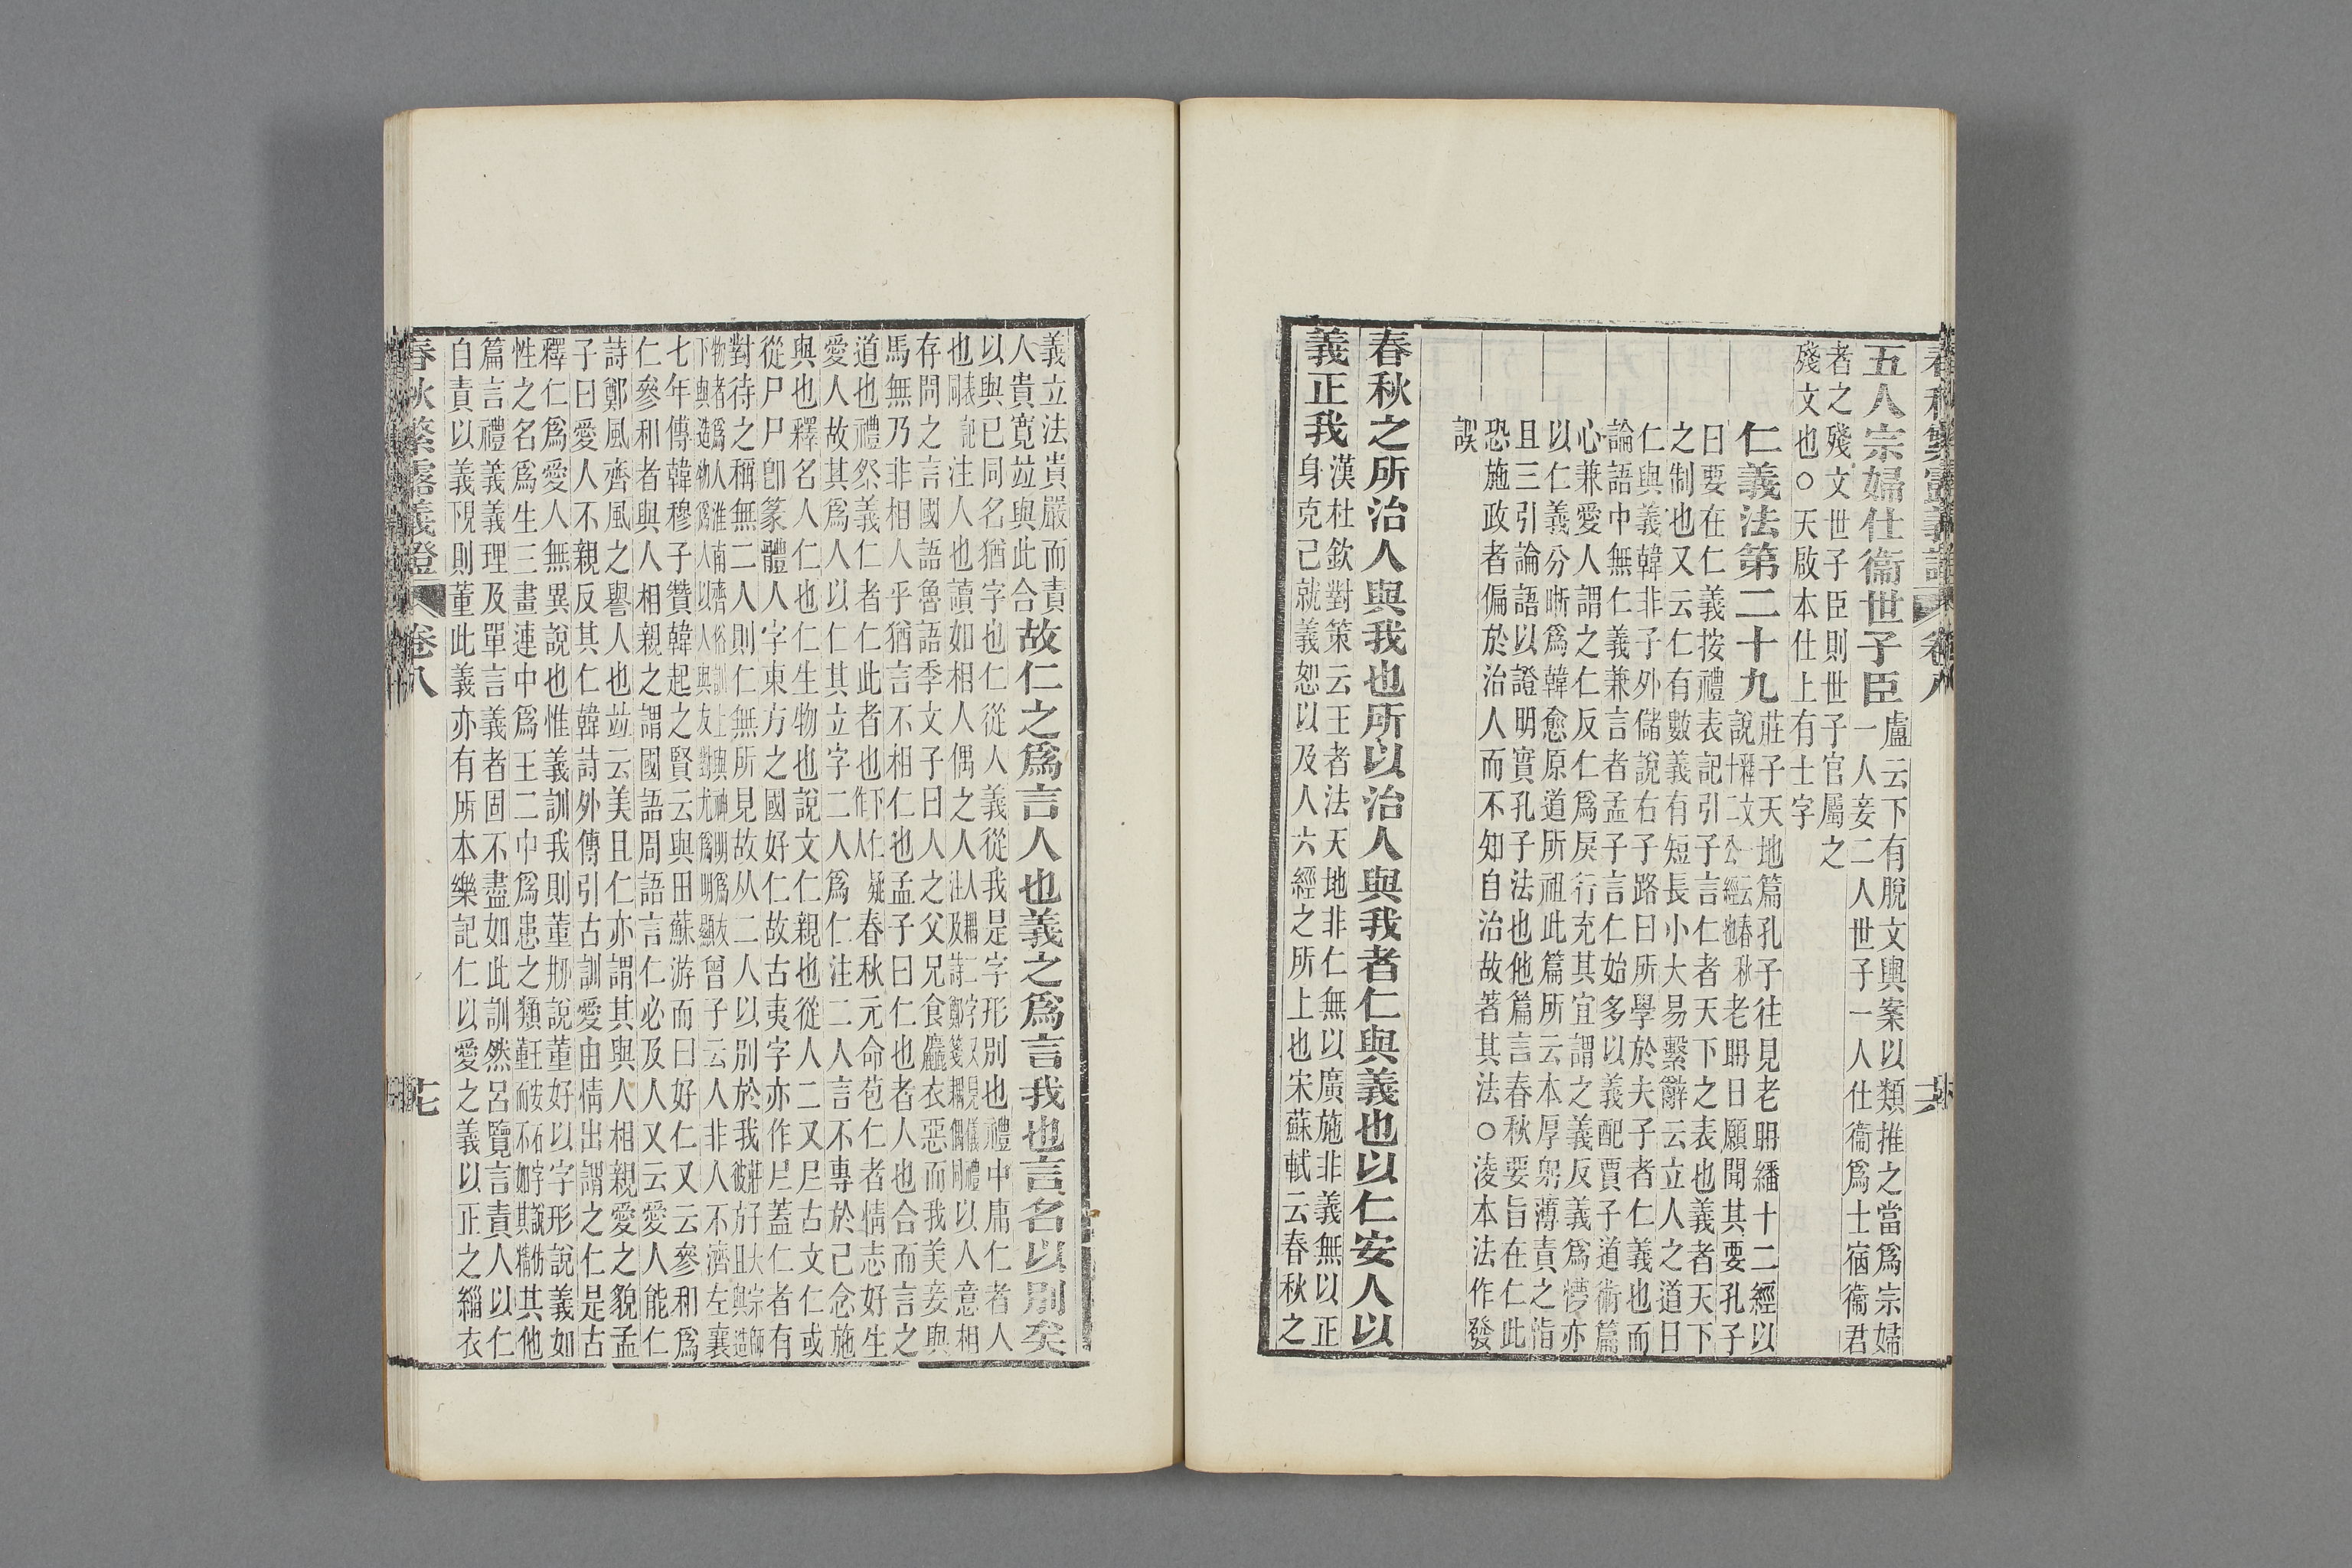 春秋繁露義證 卷八 十六
五人宗婦仕衞世子臣盧云下有脫文輿案以類推之當爲宗婦
一人妾二人世子一人仕衞爲士宿衞君
者之殘文世子臣則世子官屬之
殘文也○天啟本仕上有士字
仁義法第二十九莊子天地篇孔子往見老耼繙十二經以
說釋文一云春秋十二公經也老耼曰願聞其要孔子
曰要在仁義按禮表記引子言仁者天下之表也義者天下
之制也又云仁有數義有短長小大易繫辭云立人之道曰
仁與義韓非子外儲說右子路曰所學於夫子者仁義也而
論語中無仁義兼言者孟子言仁始多以義配賈子道術篇
心兼愛人謂之仁反仁爲戾行充其宜謂之義反義爲懜亦
以仁義分晰爲韓愈原道所祖此篇所云本厚躬薄責之恉
且三引論語以證明實孔子法也他篇言春秋要旨在仁此
恐施政者偏於治人而不知自治故著其法○淩本法作發
誤
春秋之所治人與我也所以治人與我者仁與義也以仁安人以
義正我漢杜欽對策云王者法天地非仁無以廣施非義無以正
身克己就義恕以及人六經之所上也宋蘇軾云春秋之
義立法貴嚴而責
人貴寬竝與此合故仁之爲言人也義之爲言我也言名以別矣
以與已同名猶字也仁從人義從我是字形別也禮中庸仁者人
也注人也讀如相人偶之人以人意相
存問之言國語魯語季文子曰人之父兄食麤衣惡而我美妾與
馬無乃非相人乎猶言不相仁也孟子曰仁也者人也合而言之
道也禮祭義仁者仁此者也下仁疑作人春秋元命苞仁者情志好生
愛人故其爲人以仁其立字二人爲仁注二人言不專於己念施
與也釋名人仁也仁生物也說文仁親也從人二又𡰥古文仁或
從尸尸卽篆體人字東方之國好仁故古夷字亦作𡰥蓋仁者有
對待之稱無二人則仁無所見故从二人以別於我
曾子云人非人不濟左襄
七年傳韓穆子贊韓起之賢云與田蘇游而曰好仁又云參和爲
仁參和者與人相親之謂國語周語言仁必及人又云愛人能仁
詩鄭風齊風之譽人也竝云美且仁亦謂其與人相親愛之貌孟
子曰愛人不親反其仁韓詩外傳引古訓愛由情出謂之仁是古
釋仁爲愛人無異說也惟義訓我則董剏說董好以字形說義如
性之名爲生三畫連中爲王二中爲患之類其他
篇言禮義義理及單言義者固不盡如此訓然呂覽言責人以仁
自責以義䫉則董此義亦有所本樂記仁以愛之義以正之緇衣
春秋繁露義證 卷八 十七